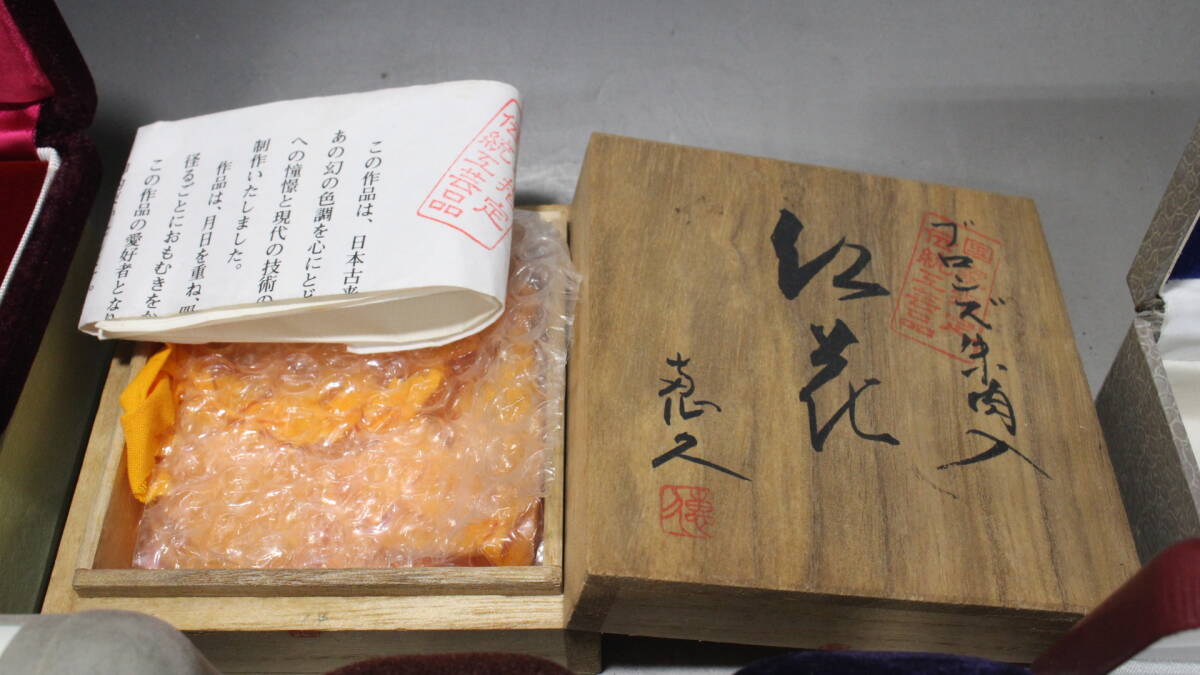 伝統工芸品
指定
この作品は、日本古来
あの幻の色調を心にとど
への憧憬と現代の技術の
制作いたしました。
作品は、月日を重ね、
径るごとにおもむきをか
この作品の愛好者となり
ブロンズ朱肉入
紅花
恵久